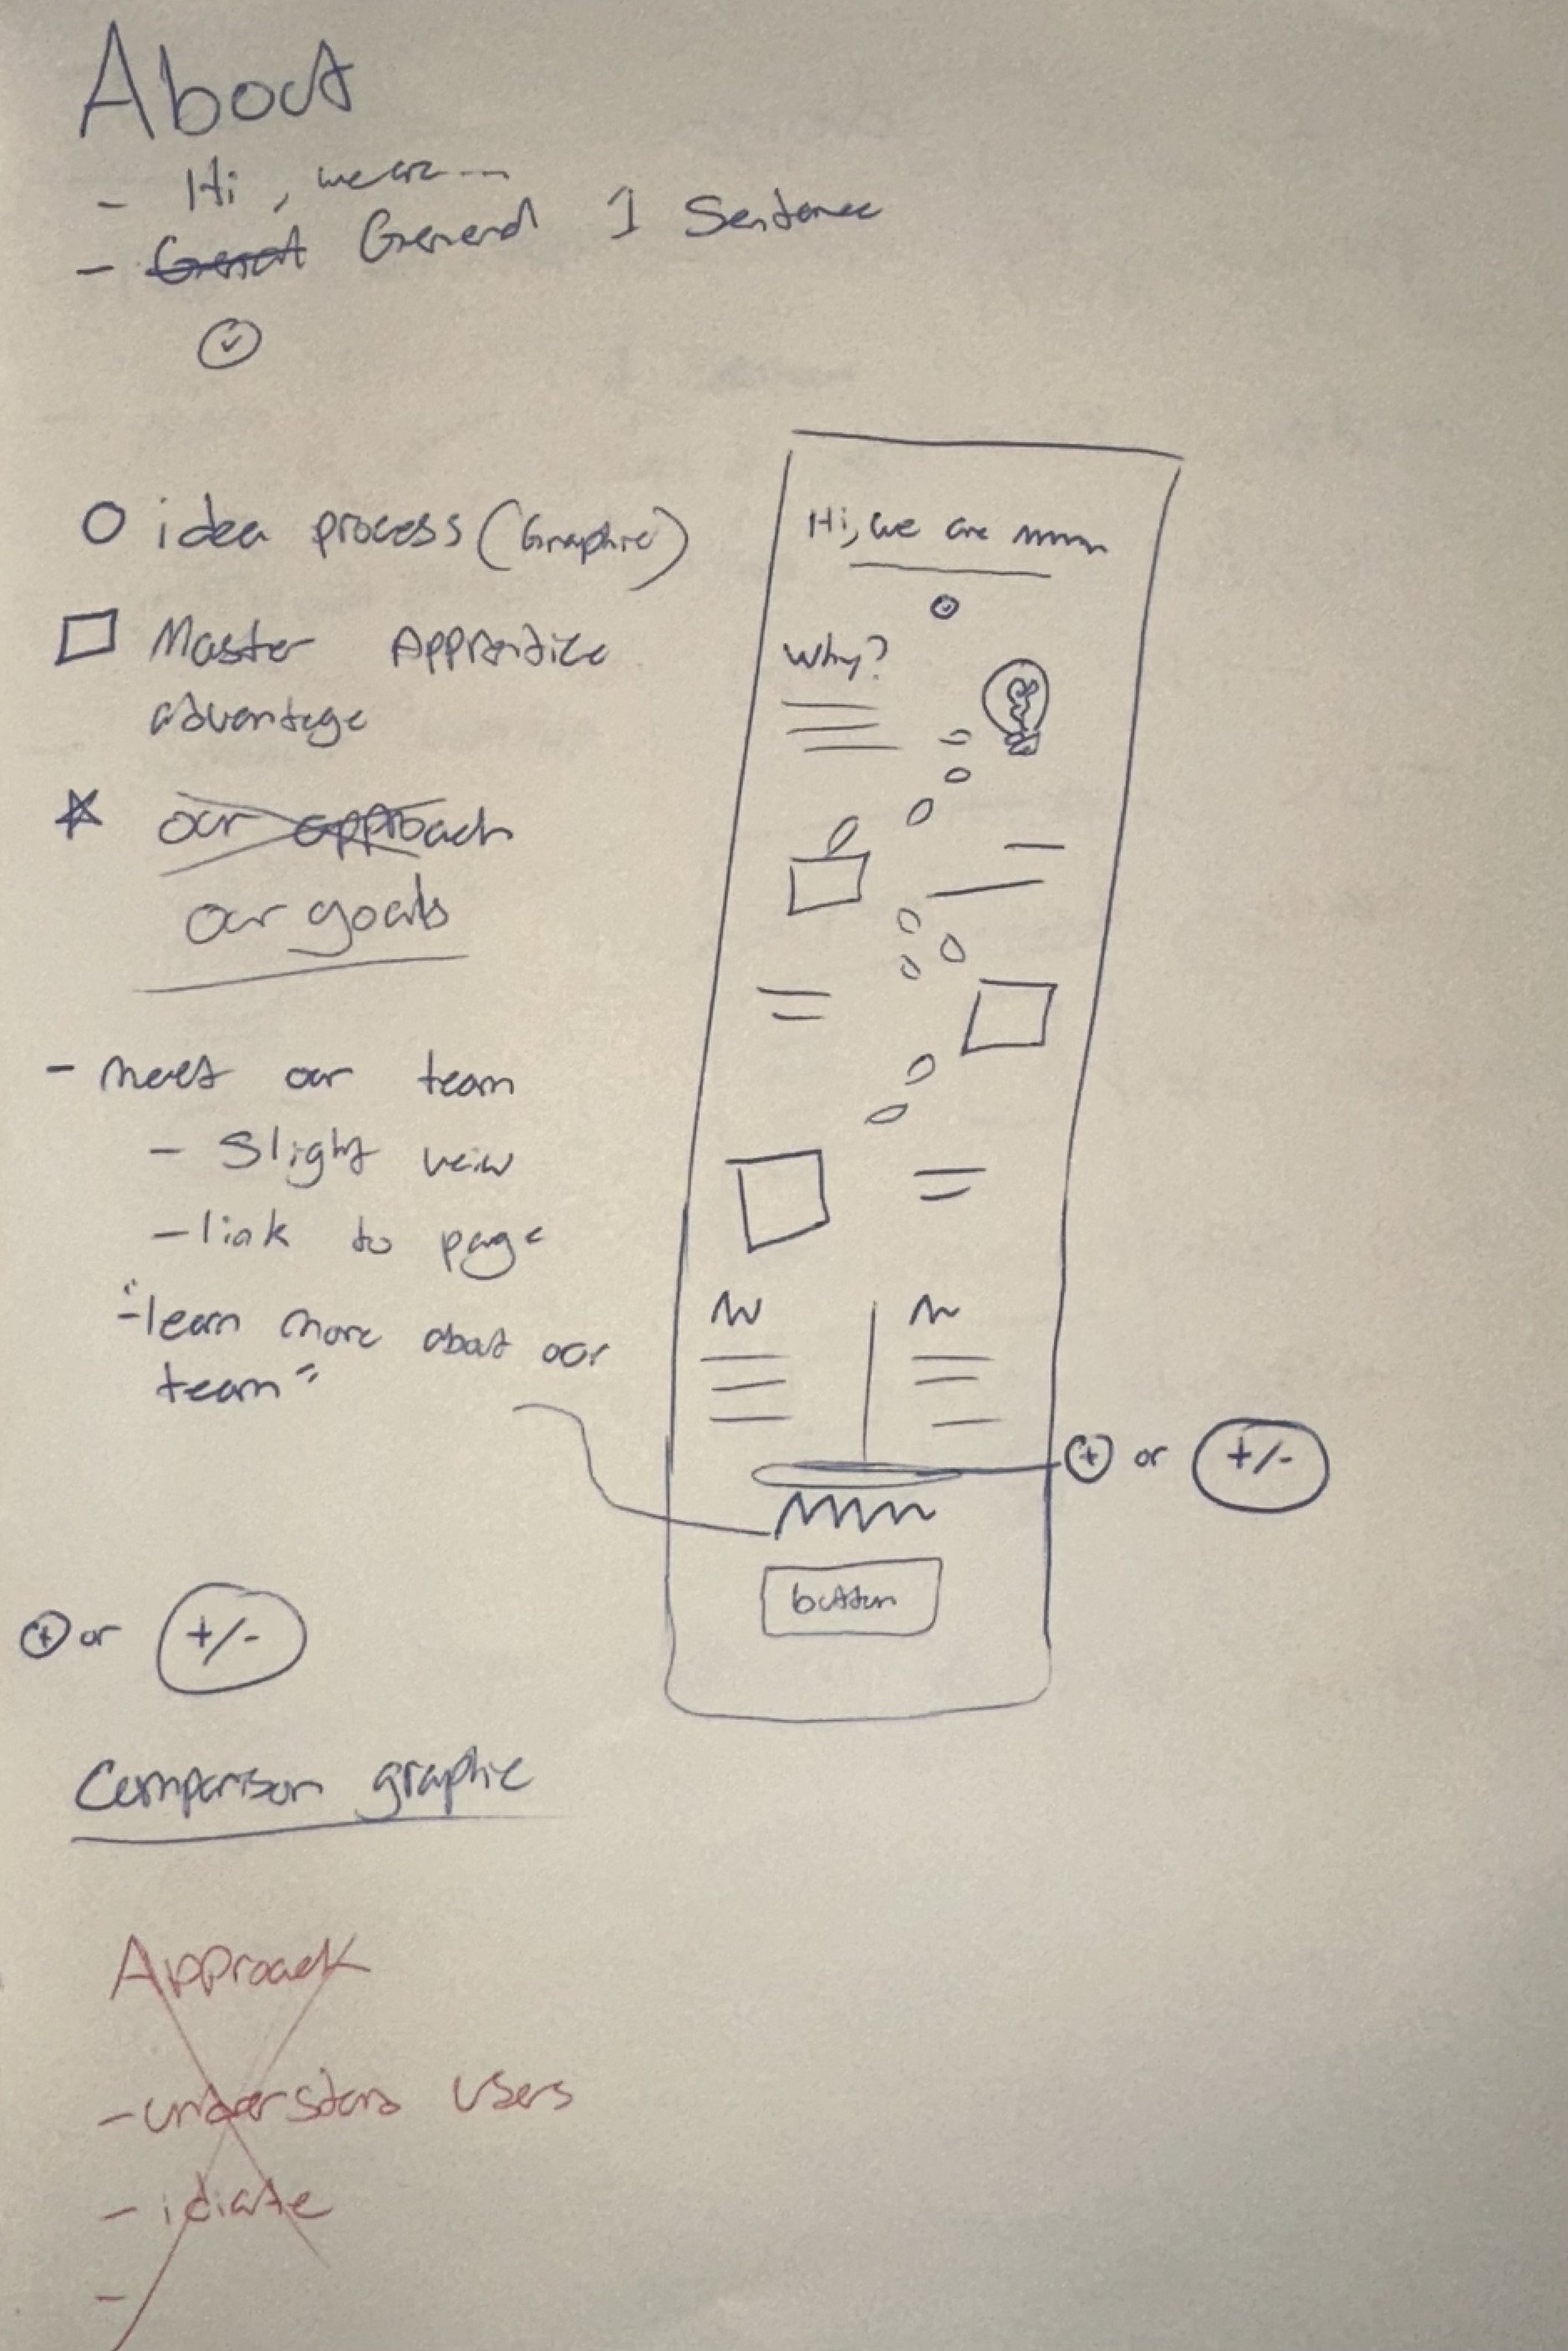 About
- Hi, we are ...
- General 1 Sentence
idea process (Graphic)
Master Apprentice
advantage
our approach
our goals
- meet our team
- Slight veiw
- link to page
"-learn more about our
team"
+ or +/-
Comparison graphic
Approach
- understand users
- idiate
-
Hi, we are
Why?
+ or +/-
button